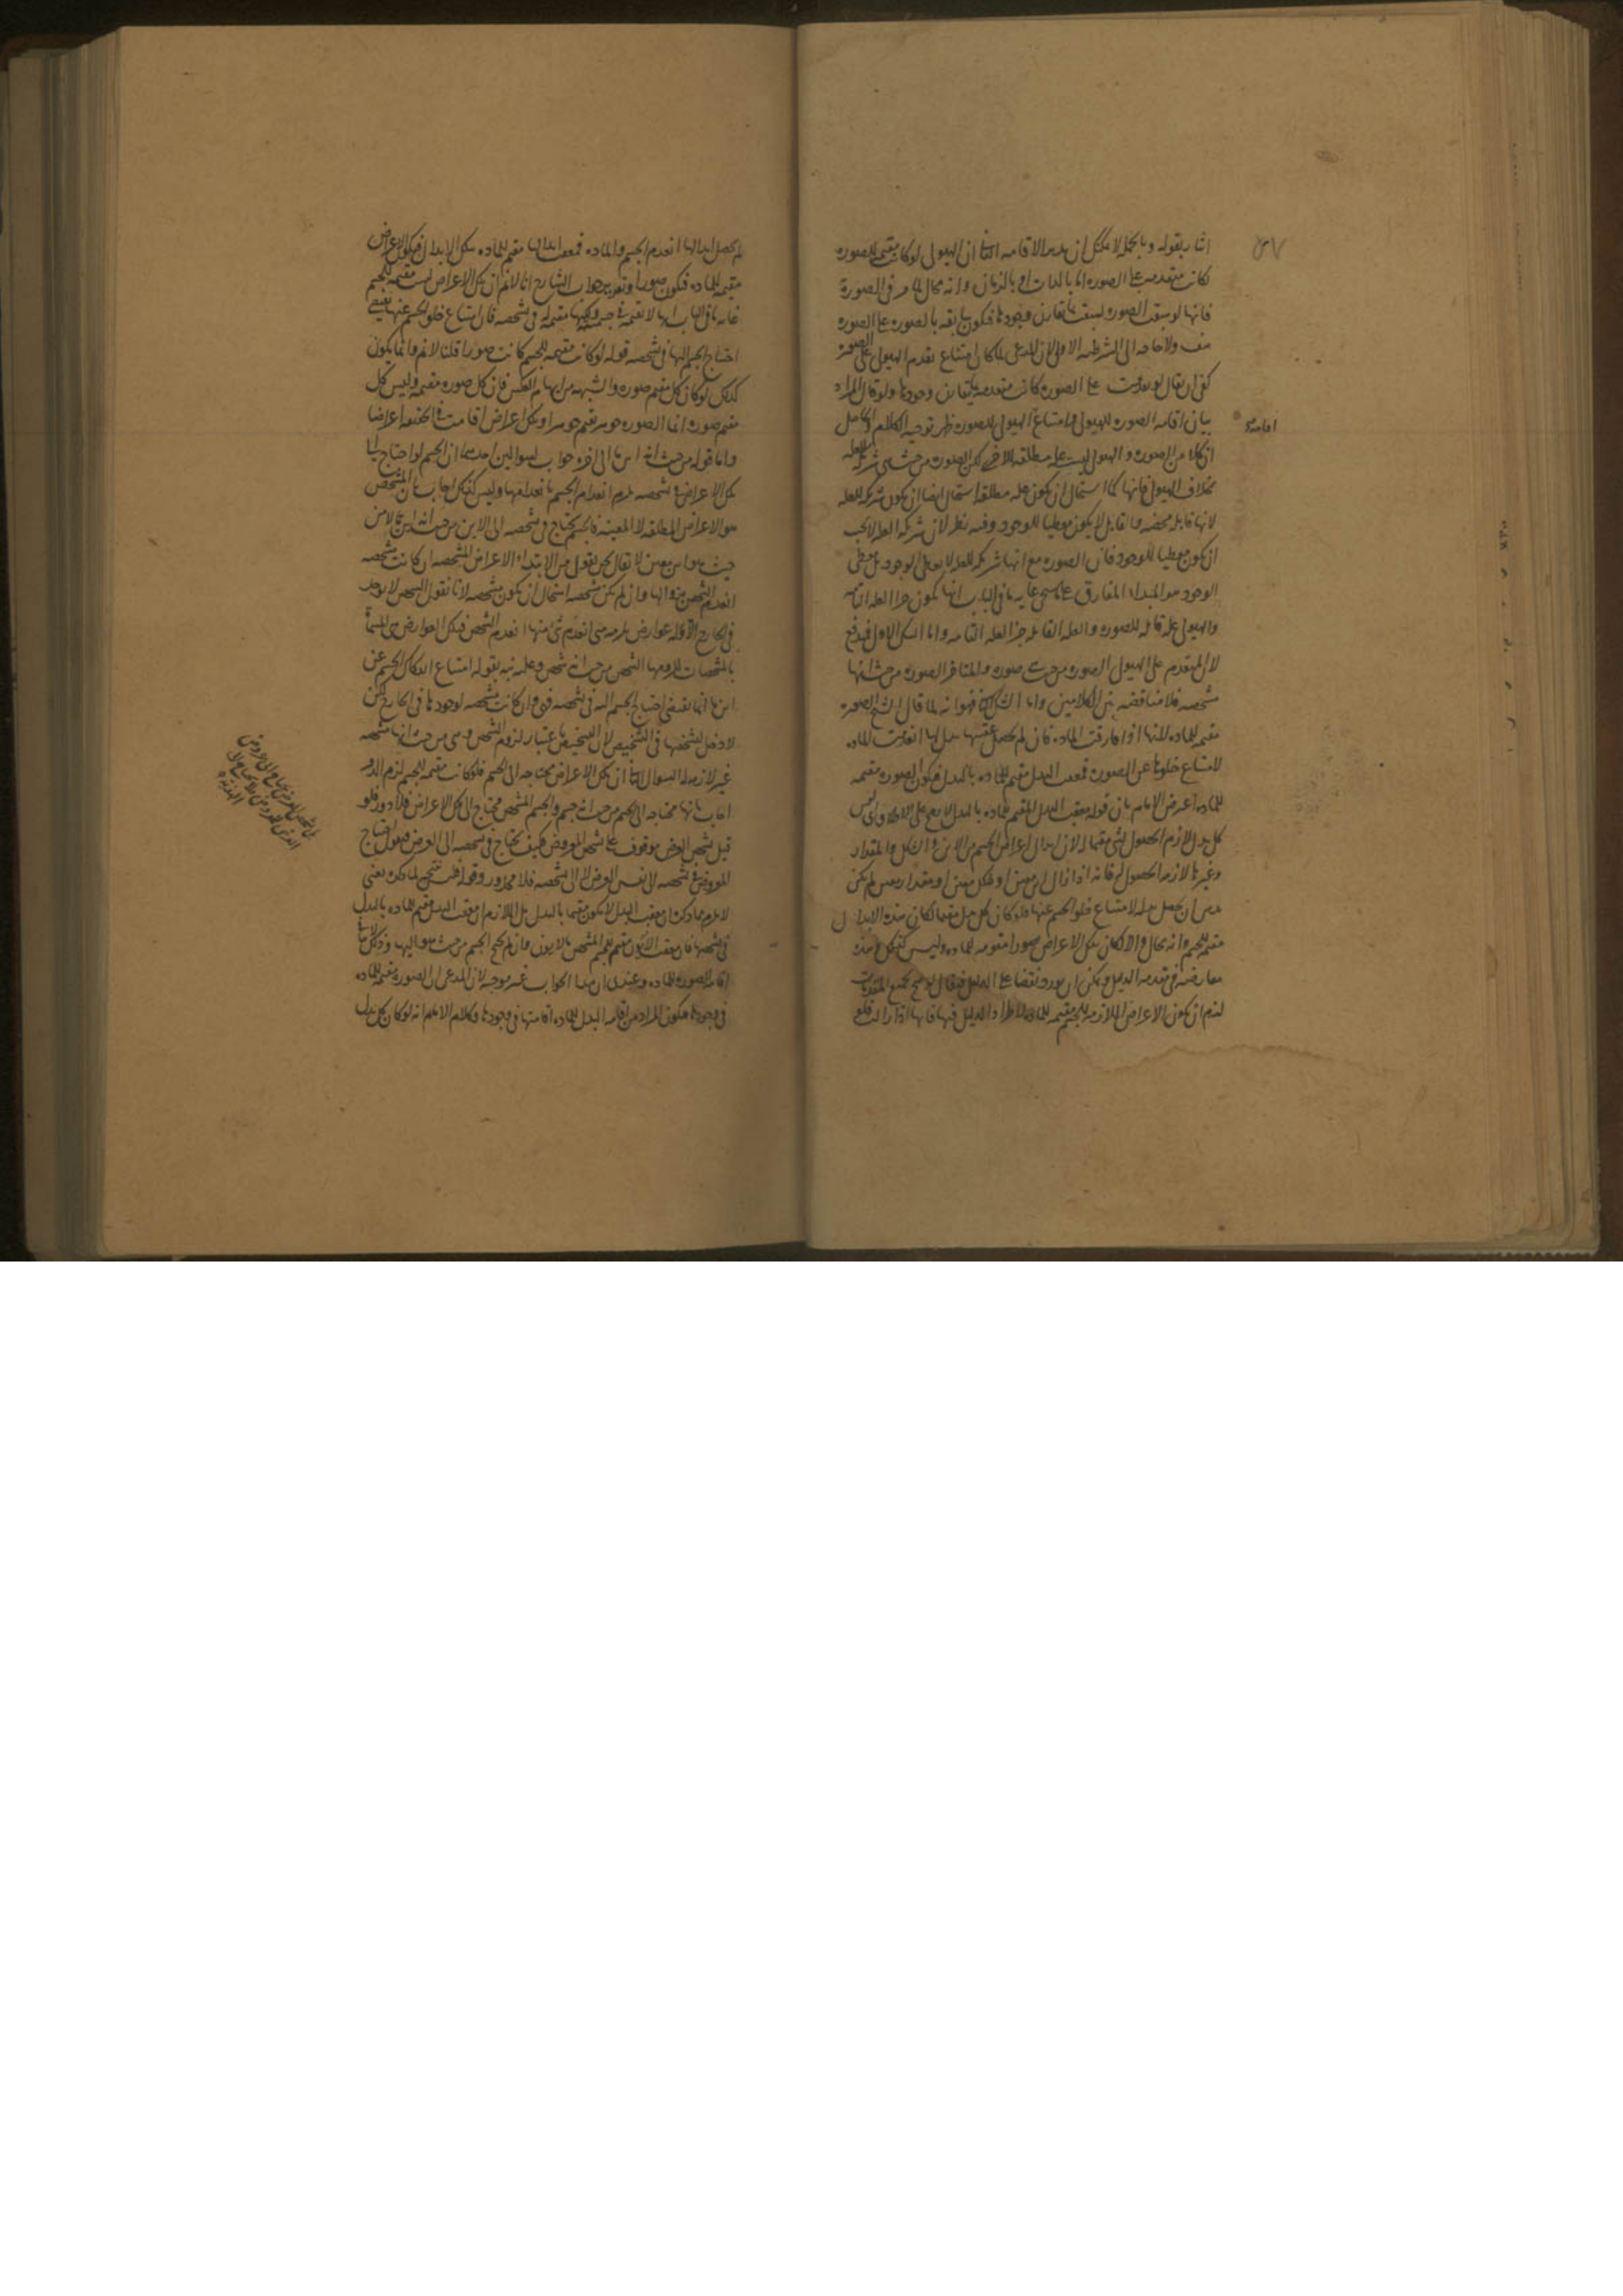 اشار بقوله وبالجملة لا يمكن ان يدير الاقامه الثانى ان الهيولى لو كانت مقيمة للصوره
لكانت متقدمه على الصوره اما بالذات او بالزمان وانه محال لما مر فى الصورة
فانها لو سبقت الصوره لسبقت ما يقارن وجودها فيكون سابقه بالصوره على الصوره
هف ولا حاجه الى الشرطيه الاولى لان المدعى لما كان امتناع تقدم الهيولى على الصوره
كفى ان يقال لو تقدمت على الصوره كانت متقدمه على ما يقارن وجودها ولو قال المراد
بيان اقامه الصوره للهيولى وامتناع الهيولى للصوره ظهر توجيه الكلام والحاصل
اقامة
ان كلا من الصوره والهيولى ليست عله مطلقه للاخرى لكن الصوره من حيث هى شريكه للعله
بخلاف الهيولى فانها كما استحال ان يكون عله مطلقه استحال ايضا ان يكون شريكه للعله
لانها قابله محضه والقابل لا يكون معطيا للوجود وفيه نظر لان شريكه العله لا يجب
ان يكون معطيا للوجود فان الصوره مع انها شريكه للعله لا يعطى الوجود بل معطى
الوجود هو المبداء المفارق على ما سيجى غايه ما فى الباب انها يكون جزا العله التامه
والهيولى عله قابله للصوره والعله القابله جزا العله التامه واما الشك الاول فيدفع
لان المتقدم على الهيولى الصوره من حيث هى صوره والمتاخر الصوره من حيث انها
مشخصه فلا مناقضه بين الكلامين واما الشك الثانى فهو انه لما قال الشيخ الصوره
مقيمه للماده لانها اذا فارقت الماده فان لم يحصل عقيبها بدل لها انعدمت الماده
لامتناع خلوها عن الصوره فمعقب البدل مقيم للماده بالبدل فيكون الصوره مقيمه
للماده اعترض الامام بان قوله معقب البدل مقيم للماده بالبدل لا يصح على الاطلاق اذ ليس
كل بدل لازم الحصول لشى مقيما له لان ابدال اعراض الجسم من الاين والشكل والمقدار
وغيرها لازم الحصول له فانه اذا زال اين معين او شكل معين او مقدار معين لم يكن
بد من ان يحصل بدله لامتناع خلو الجسم عنها فلو كان كل بدل مقيما لكان هذه الابدال
مقيمه للجسم وانه محال والا لكان تلك الاعراض صورا مقومه للماده وليس كذلك وهذه
معارضه فى مقدمه الدليل ويمكن ان يورد نقضا على الدليل فيقال لو صح بجميع المقدمات
لزم ان يكون الاعراض اللازمه للجسم مقيمه للماده لاطراد الدليل فيها فانها اذا زالت فلو
لم يحصل ابدالها انعدم الجسم والماده فمعقب ابدالها مقيم للماده بتلك الابدال فيكون الاعراض
مقيمه للماده فيكون صورا وتقرير جواب الشارح انا لا نم ان تلك الاعراض ليست مقيمه للجسم
غايه ما فى الباب انها لا تقيمه فى جسميته لكنها مقيمه له فى تشخصه فان امتناع خلو الجسم عنها يقتضى
احتياج الجسم اليها فى تشخصه قوله لو كانت مقيمه للجسم كانت صورا قلنا لا نم وانما يكون
كذلك لو كان كل مقيم صوره والشبهه من ايهام العكس فان كل صوره مقيمه وليس كل
مقيم صوره انما الصوره جوهر تقيم جوهرا وتلك اعراض اقامت
واما قوله من حيث انه اين ما الى اخره جواب لسوالين احدهما ان الجسم لو احتاج الى
تلك الاعراض فى تشخصه يلزم انعدام الجسم بانعدامها وليس كذلك اجاب بان المشخص
هو الاعراض المطلقه لا المعينه فالجسم يحتاج فى تشخصه الى الاين من حيث انه اين ما لا من
حيث هو اين معين لا يقال نحن نقول من الابتداء الاعراض المشخصه ان كانت مشخصه
انعدم الشخص بزوالها وان لم يكن مشخصه استحال ان يكون مشخصه لانا نقول الشخص لا يوجد
فى الخارج الا وله عوارض يلزمه متى انعدم شى منها انعدم الشخص فتلك العوارض هى المسماة
بالمشخصات للزومها الشخص من حيث انه شخص وعليه نبه بقوله امتناع انفكاك الجسم عن
اين ما انما يقتضى احتياج الجسم اليه فى تشخصه فهى وان كانت مشخصه لوجودها فى الخارج لكن
لا دخل لتشخصها فى التشخيص لان التشخيص باعتبار لزوم الشخص وهى من حيث انها مشخصه
غير لازمه السوال الثانى ان تلك الاعراض محتاجه الى الجسم فلو كانت مقيمه للجسم لزم الدور
اجاب بانها محتاجه الى الجسم من حيث انه جسم والجسم المشخص محتاج الى تلك الاعراض فلا دور فلو
قيل تشخص العرض موقوف على تشخص المعروض فكيف يحتاج فى تشخصه الى العرض فنقول احتياج
المعروض فى تشخصه الى نفس العرض لا الى تشخصه فلا محذور وقوله فليس يتجه لما ذكره يعنى
لا يلزم مما ذكره ان معقب البدل لا يكون مقيما بالبدل بل اللازم ان معقب البدل مقيم للماده بالبدل
فى تشخصها فان معقب الايون مقيم للجسم المشخص بالايون وان لم يحتج الجسم من حيث هو اليها وذلك لا ينافى
اقامه الصوره للماده وعندى ان هذا الجواب غير موجه لان المدعى ان الصوره مقيمه للماده
فى وجودها فيكون المراد من اقامه البدل للماده اقامتها فى وجودها وكلام الامام انه لو كان كل بدل